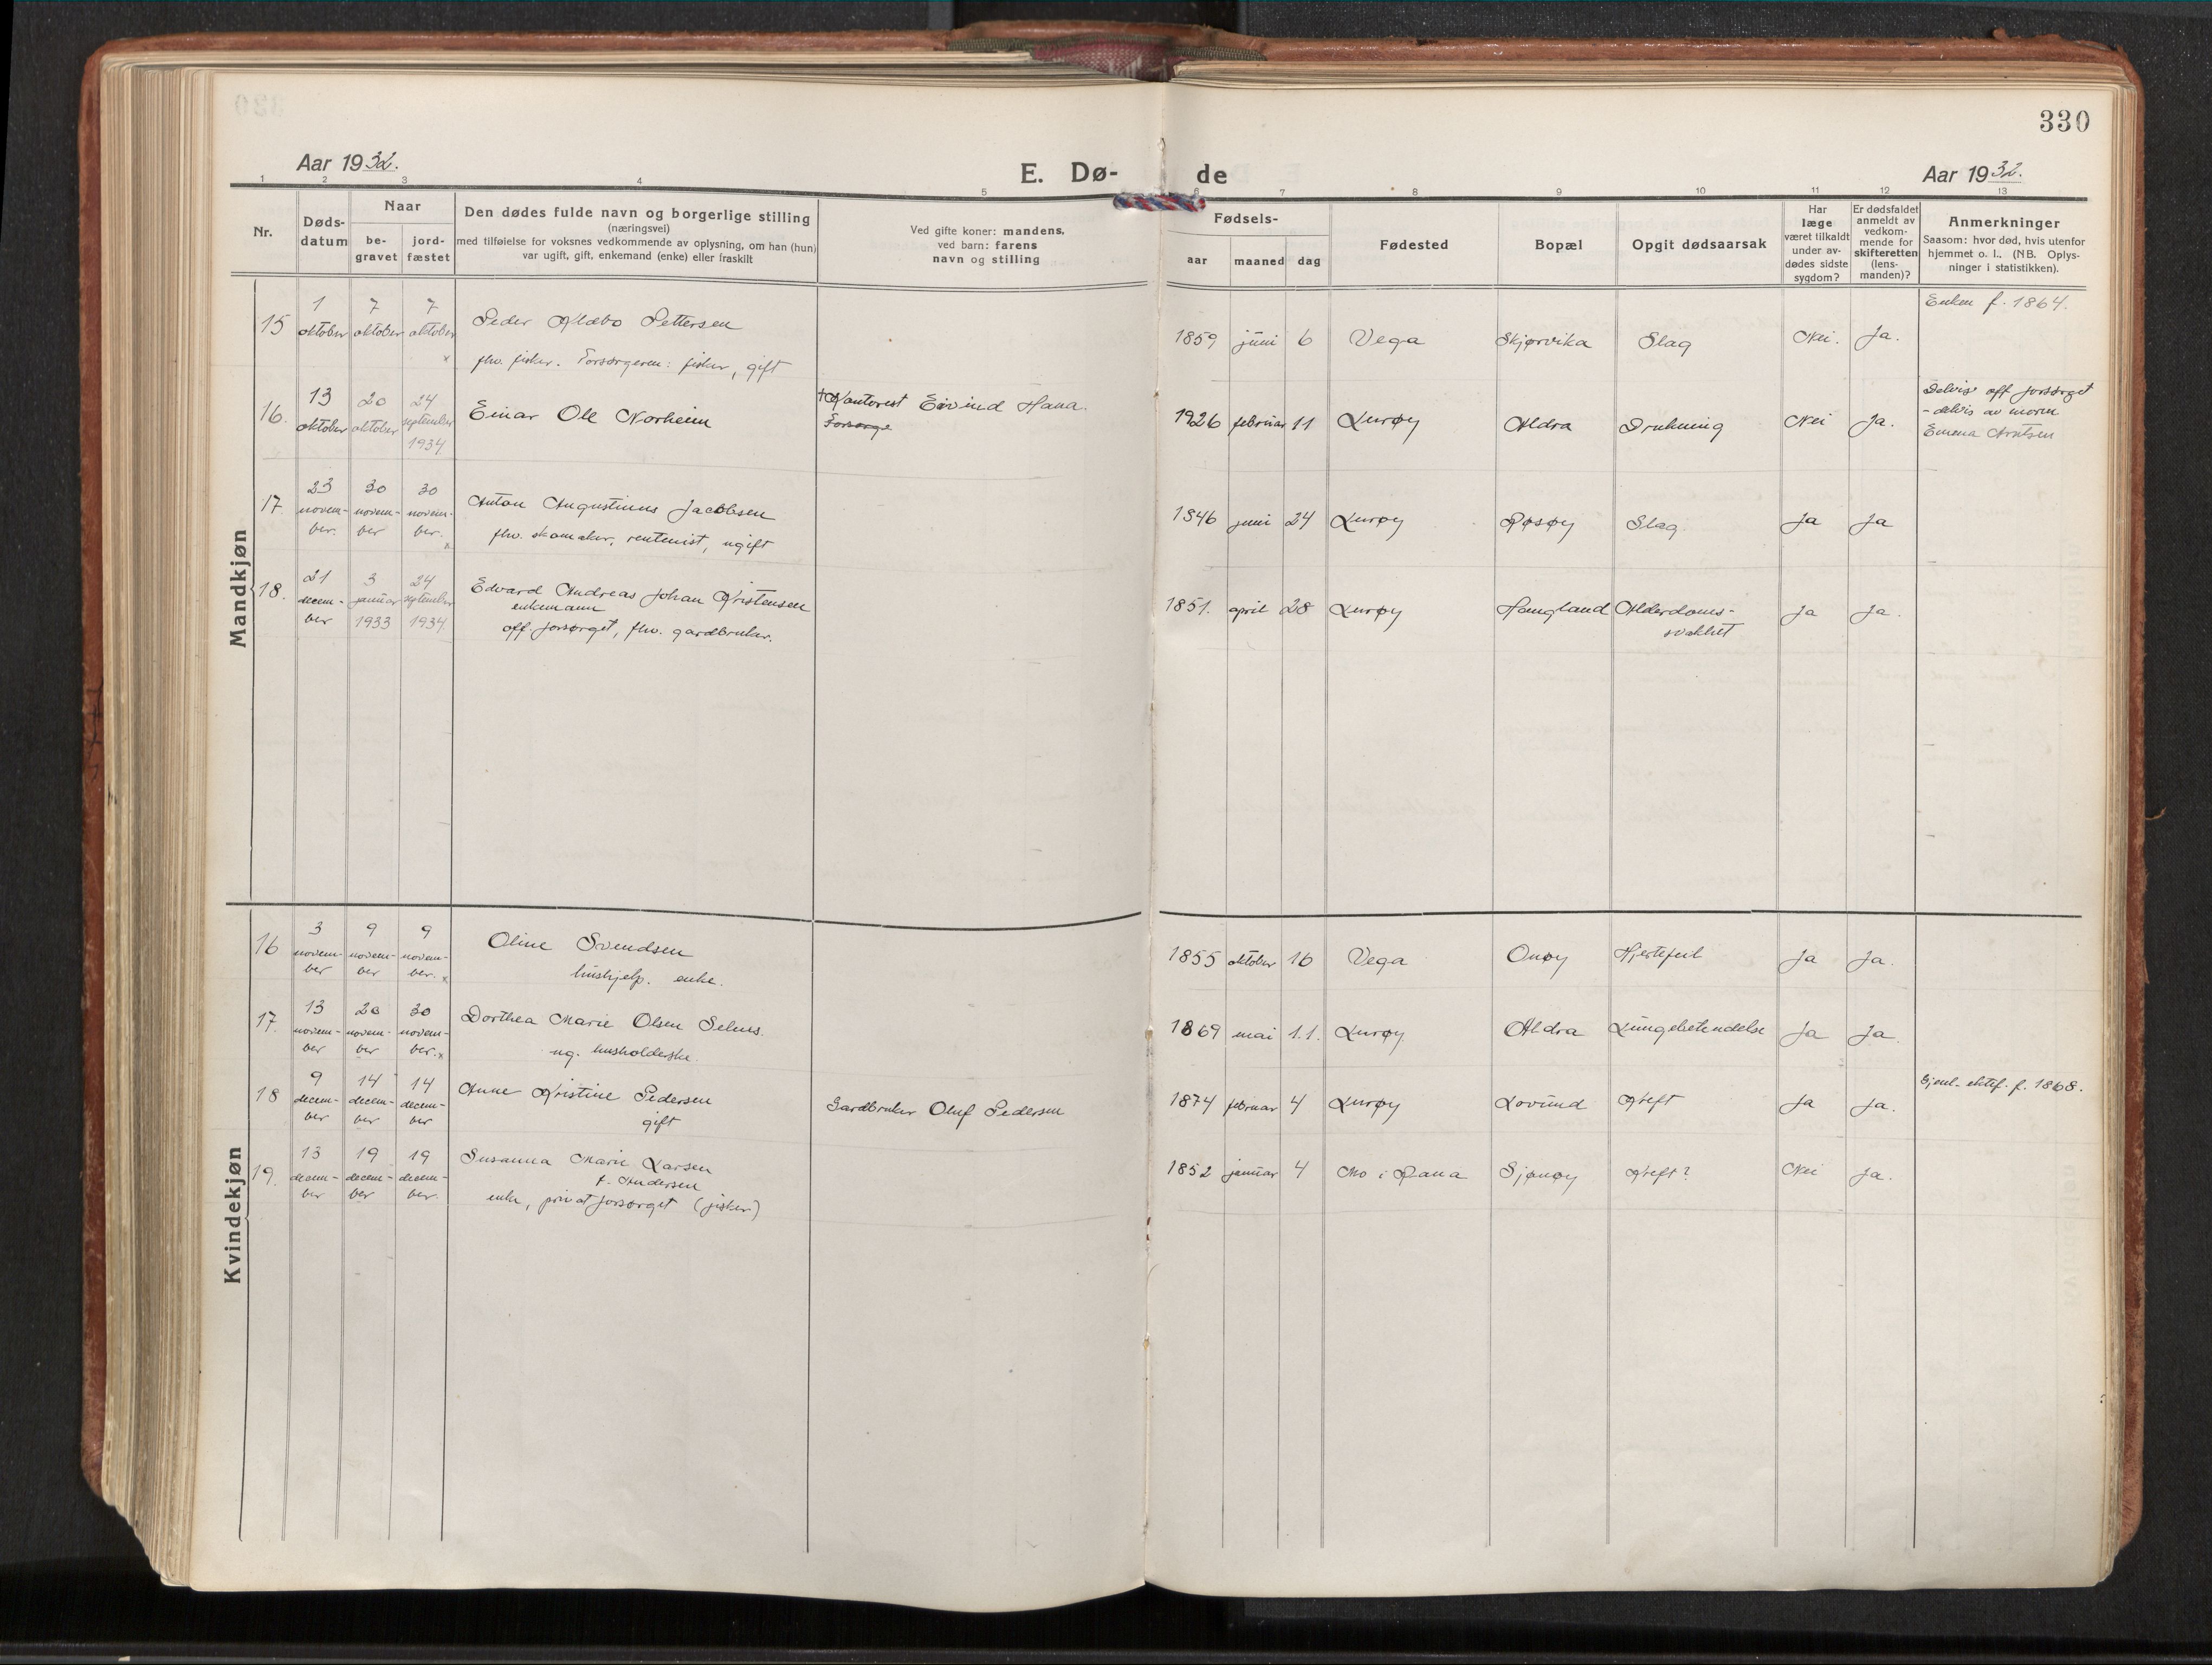 330
Aar 1932.
E. Dø-
de
Aar 1932.
1 2 3 4 5 6 7 8 9 10 11 12 13
Nr.
Døds-
datum
Naar
be-
gravet
jord-
fæstet
Den dødes fulde navn og borgerlige stilling
(næringsvei)
med tilføielse for voksnes vedkommende av oplysning, om han (hun)
var ugift, gift, enkemand (enke) eller fraskilt
Ved gifte koner: mandens,
ved barn: farens
navn og stilling
Fødsels-
aar
maaned
dag
Fødested
Bopæl
Opgit dødsaarsak
Har
læge
været tilkaldt
under av-
dødes sidste
sygdom?
Er dødsfaldet
anmeldt av
vedkom-
mende for
skifteretten
(lens-
manden)?
Anmerkninger
Saasom: hvor død, hvis utenfor
hjemmet o. l., (NB. Oplys-
ninger i statistikken).
Mandkjøn
15
1 oktober
7 oktober
7 oktober x
Peder Klæbo Pettersen
fhv. fisker. Forsørgeren: fisker, gift
1859 juni 6 Vega Skjørvika Slag Nei. Ja.
Enken f. 1864.
16.
13 oktober
20 oktober
24 september 1934
Einar Ole Norheim
+ Kontorist Eivind Hana.
Forsørge
1926 februar 11 Lurøy Aldra Drukning Nei Ja.
Delvis off forsørget
- delvis av moren
Emma Arntsen
17.
23 novem-
ber.
30 novem-
ber
30 novem-
ber. x
Anton Augustinus Jacobsen
fhv. skomaker, rentenist, ugift
1846 juni 24 Lurøy Røsøy Slag Ja Ja
18.
21 decem-
ber
3 januar 1933
24 september 1934
Edvard Andreas Johan Kristensen
enkemann
off. forsørget, fhv. gardbruker.
1851. april 28 Lurøy Haugland Alderdoms-
svakhet Ja Ja.
Kvindekjøn
16
3 novem-
ber
9 novem-
ber
9 novem-
ber. x
Oline Svendsen
hushjelp. enke.
1855 oktober 16 Vega Onøy Hjertefeil Ja Ja.
17.
13 novem-
ber
20 novem-
ber
30 novem-
ber. x
Dorthea Marie Olsen Selnes.
ug. husholderske.
1869 mai 11. Lurøy Aldra Lungebetendelse Ja Ja.
18
9 decem-
ber
14 decem-
ber
14 decem-
ber
Anne Kristine Pedersen
gift
Gardbruker Oluf Pedersen
1874 februar 4 Lurøy Lovund Kreft Ja Ja.
Gjenl. ektef. f. 1868.
19.
13 decem-
ber
19 decem-
ber
19 decem-
ber.
Susanna Marie Larsen
f. Andersen
enke, privat forsørget (fisker)
1852 januar 4 Mo i Rana Sjønøy Kreft? Nei Ja.